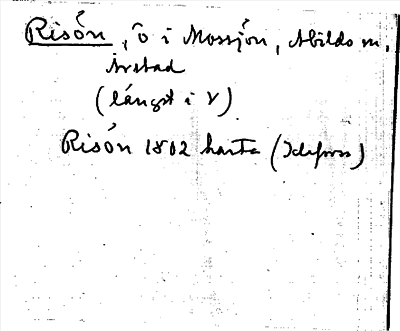 Risön, ö i Mossjön, Abilds sn,
Årstad
(längst i V)
Risön 1802 karta